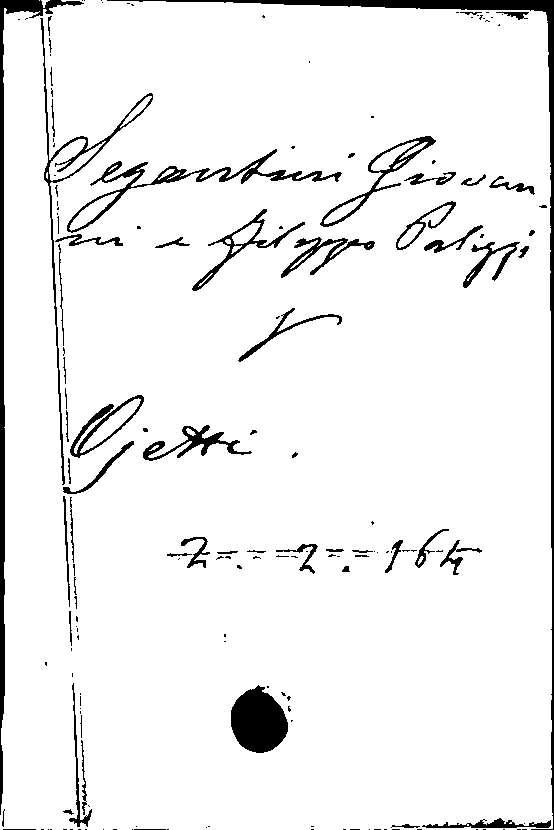 Segantini Giovan-
ni e Filippo Palizzi
V
Ojetti.
2. - 2. - 164